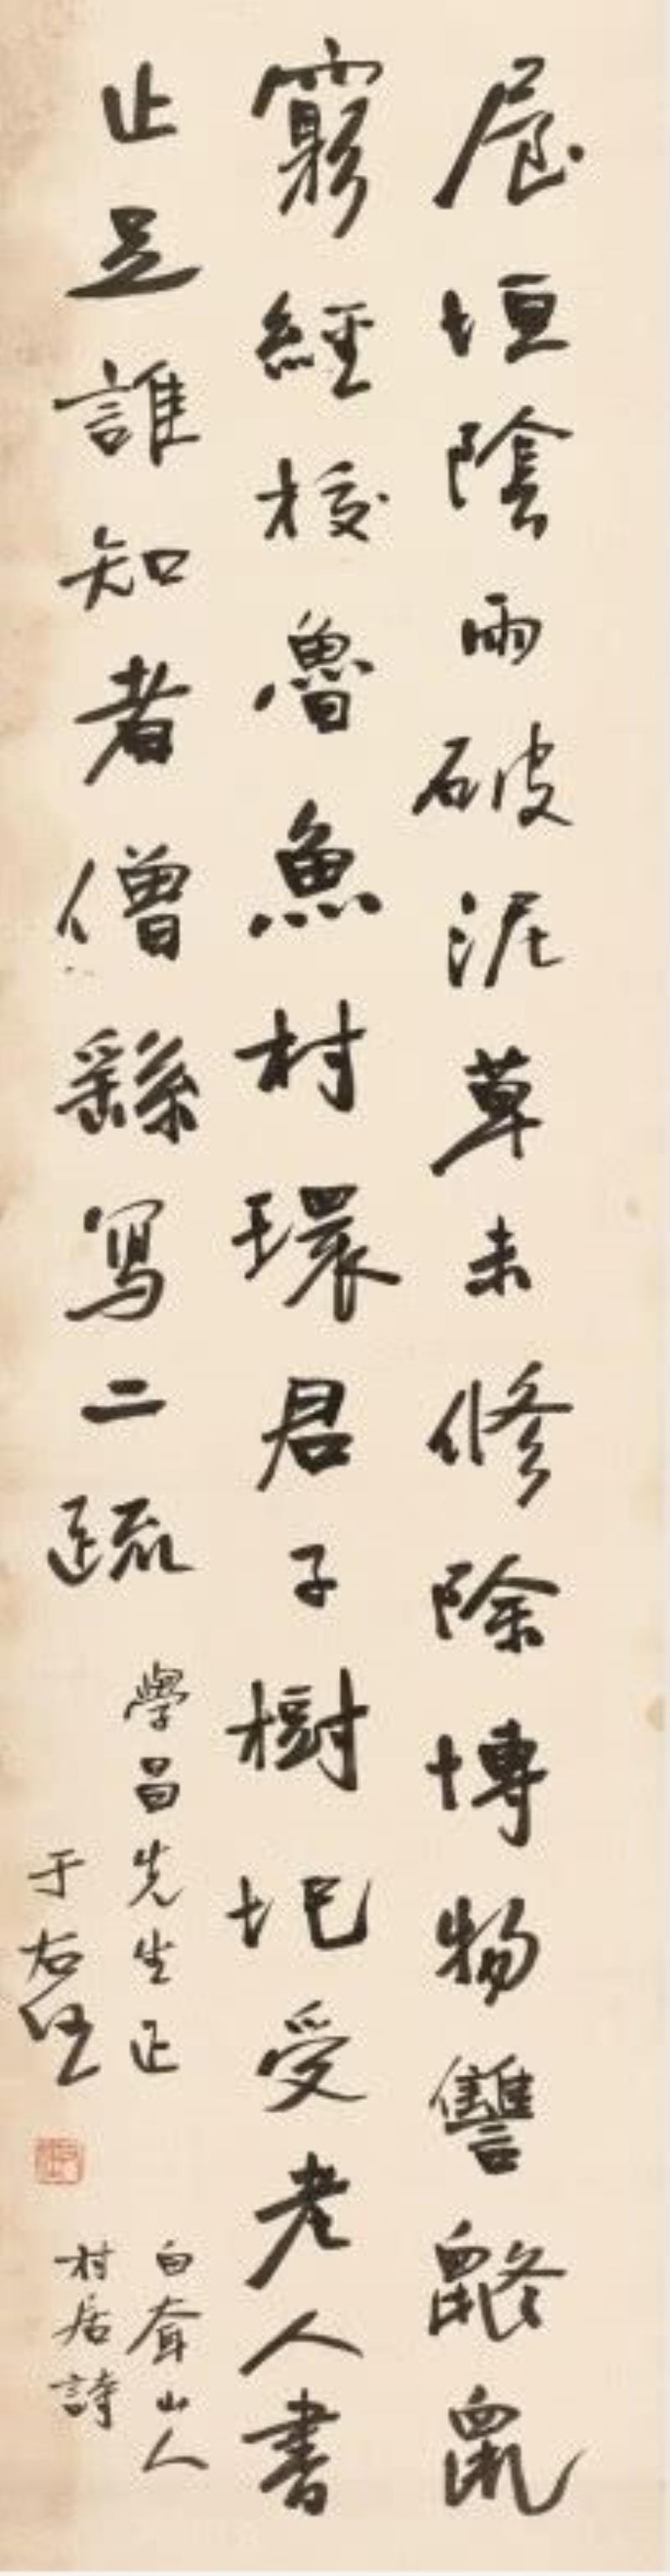 屋垣陰雨破泥草未修除博物讐鼨鼠
窮經校魯魚村環君子樹圯受老人書
止足誰知者僧繇寫二疏
學昌先生正
于右任
白耷山人
村居詩